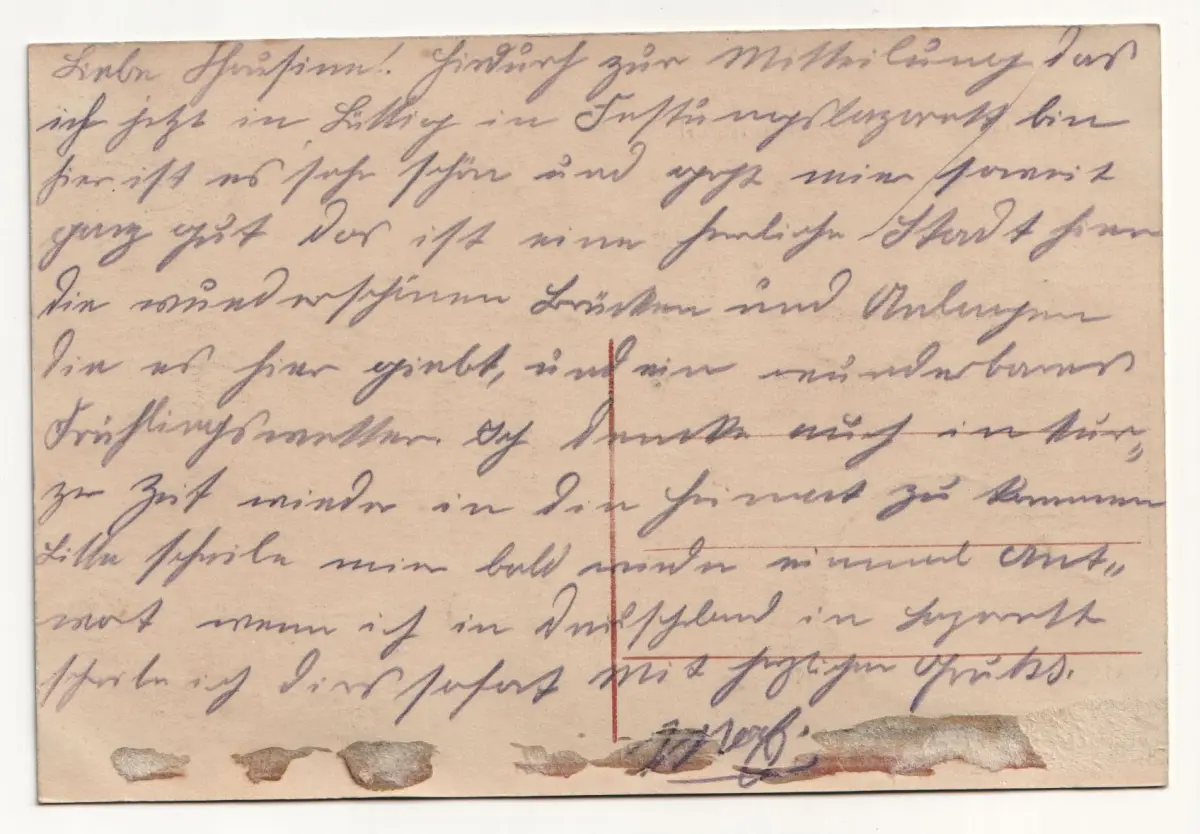 Liebe Chousine! Hirdurch zur Mitteilung das
ich jetzt in Lüttig in Festungslazarett bin
hier ist es sehr schön und geht mir soweit
ganz gut das ist eine herliche Stadt hier
die wunderschönen Brücken und Anlagen
die es hier giebt, und ein wunderbares
Frühlingswetter. Ich dencke auch in kur„
ze Zeit wieder in die Heimat zu kommen
bitte schreibe mir bald wieder einmal Ant„
wort wenn ich in Deutschland in Lazarett
schreibe ich dir es sofort Mit herzlichen Gruß.